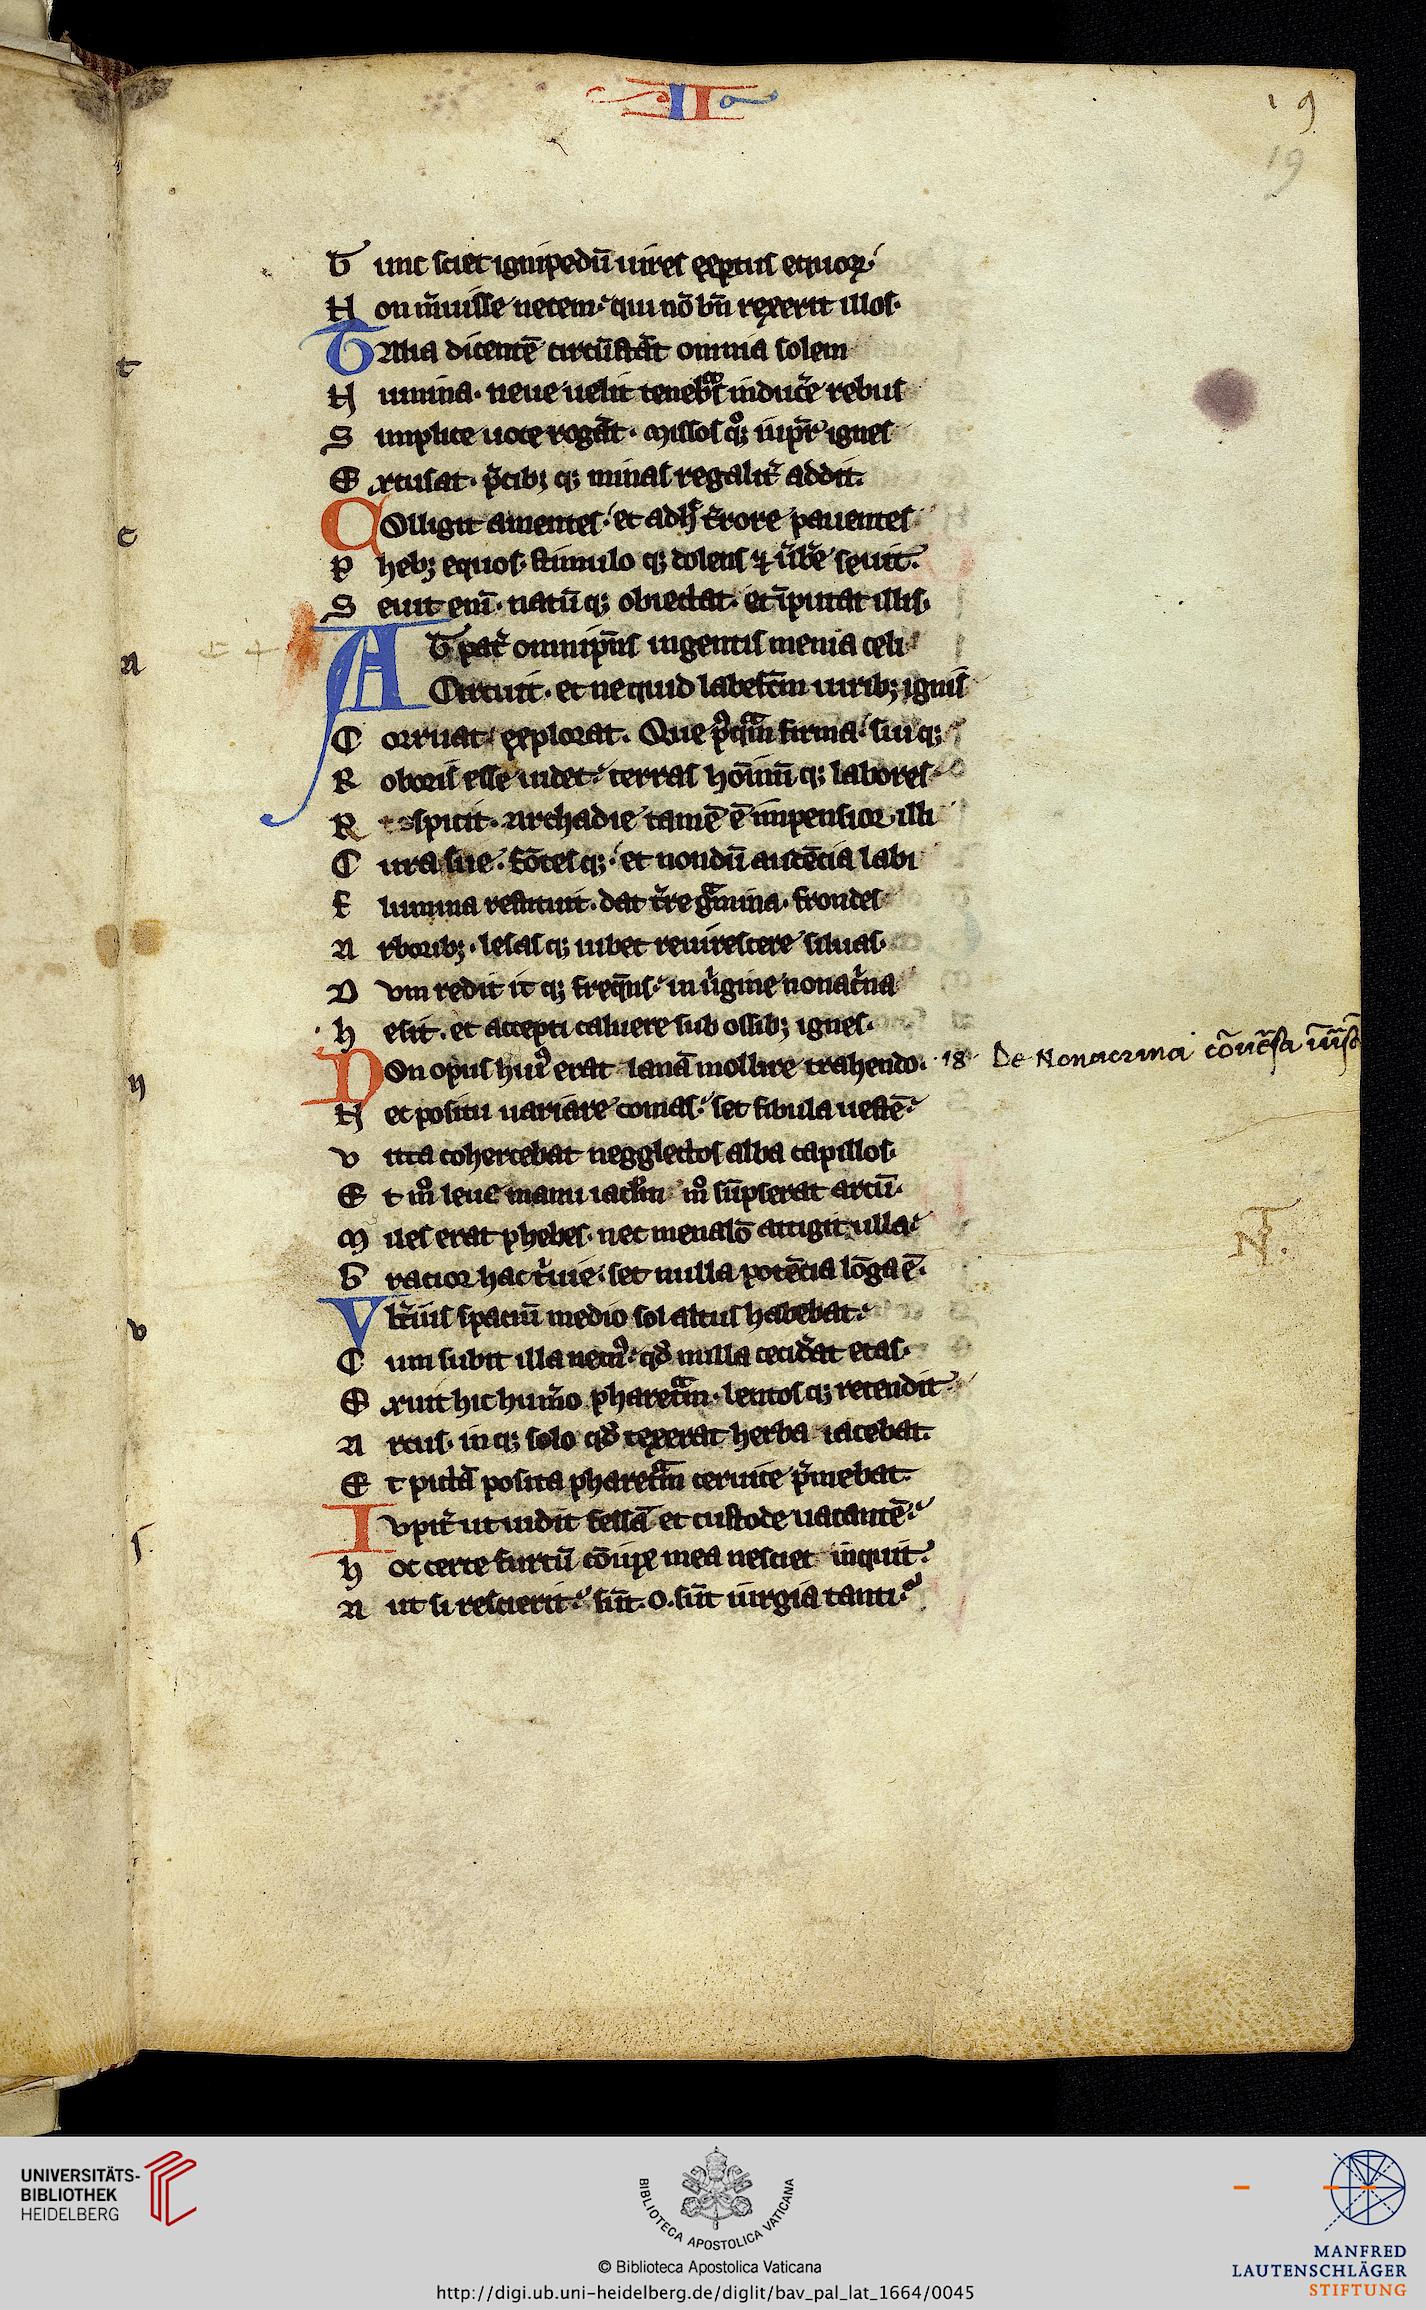 II
19
19
T unc sciet ignipedū uires exptus equoꝝ
N on m̄uisse necem qui nō bn̄ rexerit illos.
TAlia dicentē circūstāt omnia solem
N umina. neue uelit tenebͣs induc̄e rebus
S upplice uoce rogāt. missos qꝫ iupͥr ignes
E xcusat. p̄cibꝫ qꝫ minas regalit̾ addit.
COlligit amentes. et adhͨ t̾rore pauentes
P hebꝫ equos. stimulo qꝫ dolens ⁊ ūb̄e seuit.
S euit enī. natū qꝫ obiectat. et īputat illis.
AT pat̾ omnipn̄s ingentis menia celi
Circuit. et ne quid labefcͣm uiribꝫ ignis
C orruat explorat. Que pꝰqͣm firma. sui qꝫ
R oboris esse uidet. terras homīnū qꝫ labores
R espicit. Archadie tamē ē impensior illi
C ura sue. fōtes qꝫ. et nondū audēcia labi
F lumina restituit. dat t̾re gͣmina. frondes
A rboribꝫ. lesas qꝫ iubet reuirescere siluas.
D um redit it qꝫ freqn̄s. in uͥgine nonac̾na
h esit. et accepti caluere sub ossibꝫ ignes.
NOn opus huiꝰ erat lanā mollire trahendo. 18 De Nonacrina cōu̾sa ī uͬsā
N ec positu uariare comas. set fibula uestē
V itta cohercebat negglectos alba capillos.
E t mͦ leue manu iaclͫm mͦ sūpserat arcū.
M iles erat phebes. nec menalō attigit ulla
G racior hac tͥuie. set nulla potēcia lōga ē.
Vlt̾ius spaciū medio sol altus habebat.
C um subit illa nemꝰ. qd̄ nulla cecid̾at etas.
E xuit hic hum̾o pharetͣm. lentos qꝫ retendit
A rcus. in qꝫ solo qd̄ texerat herba iacebat.
E t pictā posita pharetͣm ceruice p̄mebat.
Iupit̾ ut uidit fessā et custode uacantē
h oc certe furtū cōiūx mea nesciet inquit.
A ut si rescierit. sūt. o. sūt iurgia tanti
NT.
t
c
a
n
v
s.
UNIVERSITÄTS-
BIBLIOTHEK
HEIDELBERG
BIBLIOTECA APOSTOLICA VATICANA
© Biblioteca Apostolica Vaticana
http://digi.ub.uni-heidelberg.de/diglit/bav_pal_lat_1664/0045
MANFRED
LAUTENSCHLÄGER
STIFTUNG